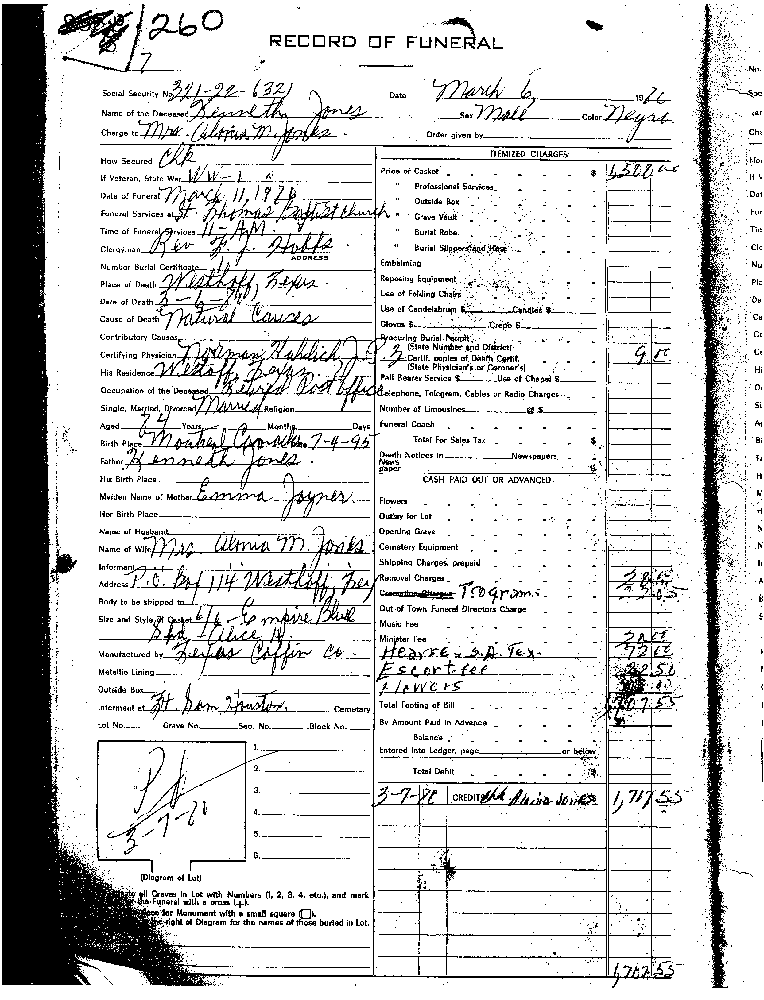 260
7
RECORD OF FUNERAL
Social Security No. 321-22-6321 Date March 6, 19
Name of the Deceased Kenneth Jones Sex Male Color Negro
Charge to Mrs. M. Jones. Order given by
How Secured Chk
If Veteran, State War WW-1
Date of Funeral March 11, 19
Funeral Services at St. Thomas Baptist Church
Time of Funeral Services 11-A.M.
Clergyman Rev. F. J. Hobbs
ADDRESS
Number Burial Certificate
Place of Death Westhoff, Texas
Date of Death 3-6-80
Cause of Death Natural Causes
Contributory Causes
Certifying Physician Norman J.P.
His Residence Westoff, Texas
Occupation of the Deceased Retired Post Office
Single, Married, Divorced Married Religion
Aged Years Months Days
Birth Place Montreal 7-4-95
Father Kenneth Jones.
His Birth Place
Maiden Name of Mother Emma Joyner
Her Birth Place
Name of Husband
Name of Wife Mrs. M. Jones
Informant
Address P.O. Box 114 Westhoff, Tex
Body to be shipped to
Size and Style of Casket 6/6 - Empire Blue
Spd - Alice
Manufactured by Texas Coffin Co.
Metallic Lining
Outside Box
Interment at Ft. Sam Houston Cemetary
Lot No. Grave No. Sec. No. Block No.
1.
2.
3.
4.
5.
6.
Pd
3-7-80
(Diagram of Lot)
all Graves in Lot with Numbers (1, 2, 3, 4, etc.), and mark
the Funeral with a cross (+).
for Monument with a small square (☐).
the right of Diagram for the names of those buried in Lot.
ITEMIZED CHARGES
Price of Casket $ 1,500.00
" Professional Services
" Outside Box
" Grave Vault
" Burial Robe
" Burial Slippers and Hose
Embalming
Reposing Equipment
Use of Folding Chairs
Use of Candelabrum $ Candles $
Gloves $ Crepe $
Procuring Burial Permit
(State Number and District)
3 Certif. copies of Death Certif. 9 00
(State Physician's or Coroner's)
Pall Bearer Service $ Use of Chapel $
Telephone, Telegram, Cables or Radio Charges
Number of Limousines @ $
Funeral Coach
Total For Sales Tax $
Death Notices in Newspapers
News
paper $
CASH PAID OUT OR ADVANCED
Flowers
Outlay for Lot
Opening Grave
Cemetery Equipment
Shipping Charges, prepaid
Removal Charges
Program
Out-of Town Funeral Directors Charge
Music Fee
Minister Fee
Hearse - S.A. Tex. 72 00
Escort fee
Flowers
Total Footing of Bill
By Amount Paid in Advance
Balance
Entered into Ledger, page or below
Total Debit $
3-7-80 CREDITS Chk Jones 1,717.55
1,717.55